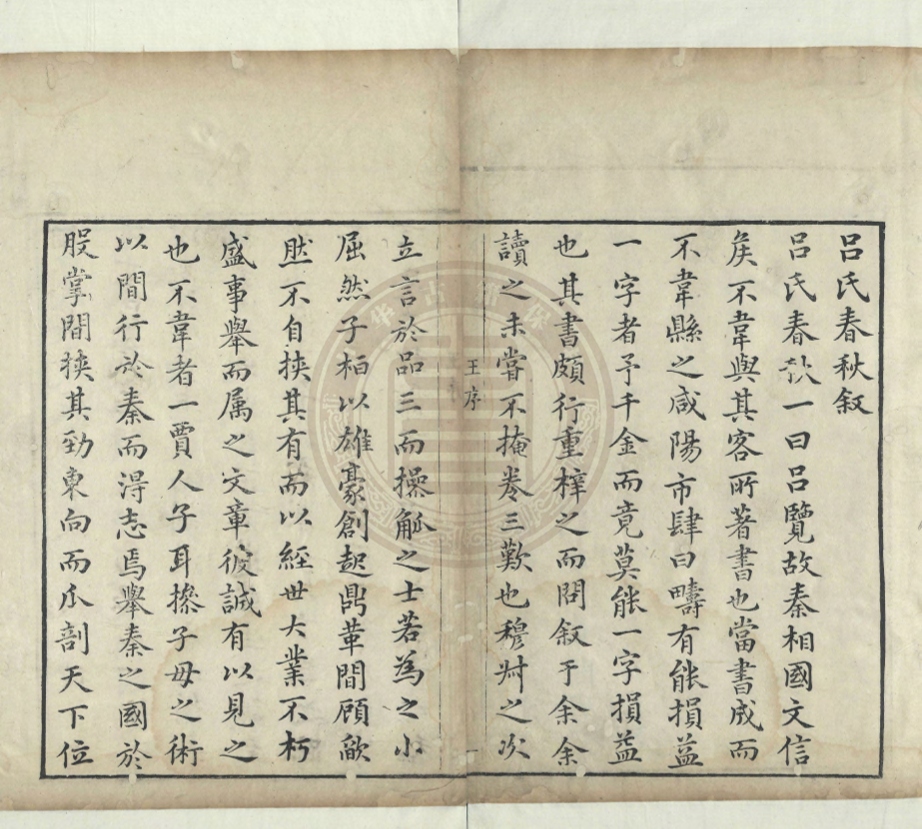 吕氏春秋叙
吕氏春秋一曰吕覽故秦相國文信
矦不韋與其客所著書也當書成而
不韋縣之咸陽市肆曰疇有能損益
一字者予千金而竟莫能一字損益
也其書頗行重梓之而問叙于余余
讀之未嘗不掩卷三歎也穆叔之次
王序
一
立言於品三而操觚之士若為之小
屈然子桓以雄豪創起鼎革間顧歛
然不自挾其有而以經世大業不朽
盛事舉而属之文章彼誠有以見之
也不韋者一賈人子耳操子母之術
以間行於秦而淂志焉舉秦之國於
股掌間挾其勁東向而瓜剖天下位